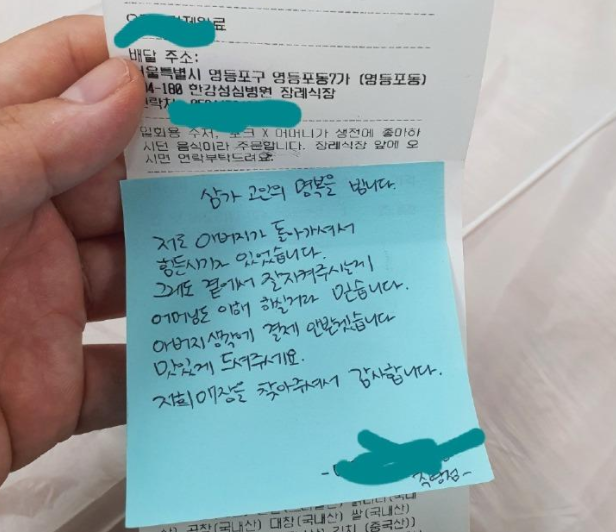 배달 주소:
서울특별시 영등포구 영등포동7가 (영등포동)
94-180 한강성심병원 장례식장
연락처
일회용 수저, 포크 X 어머니가 생전에 좋아하
시던 음식이라 주문합니다. 장례식장 앞에 오
시면 연락부탁드려요
삼가 고인의 명복을 빕니다.
저도 아버지가 돌아가셔서
힘든시기가 있었습니다.
그래도 곁에서 잘지켜주시는지
어머님도 이해 하실거라 믿습니다.
아버지생각에 결제 안받겠습니다
맛있게 드셔주세요.
저희매장을 찾아주셔서 감사합니다.
대창(국내산) 쌀(국내산)
김치 (중국산))